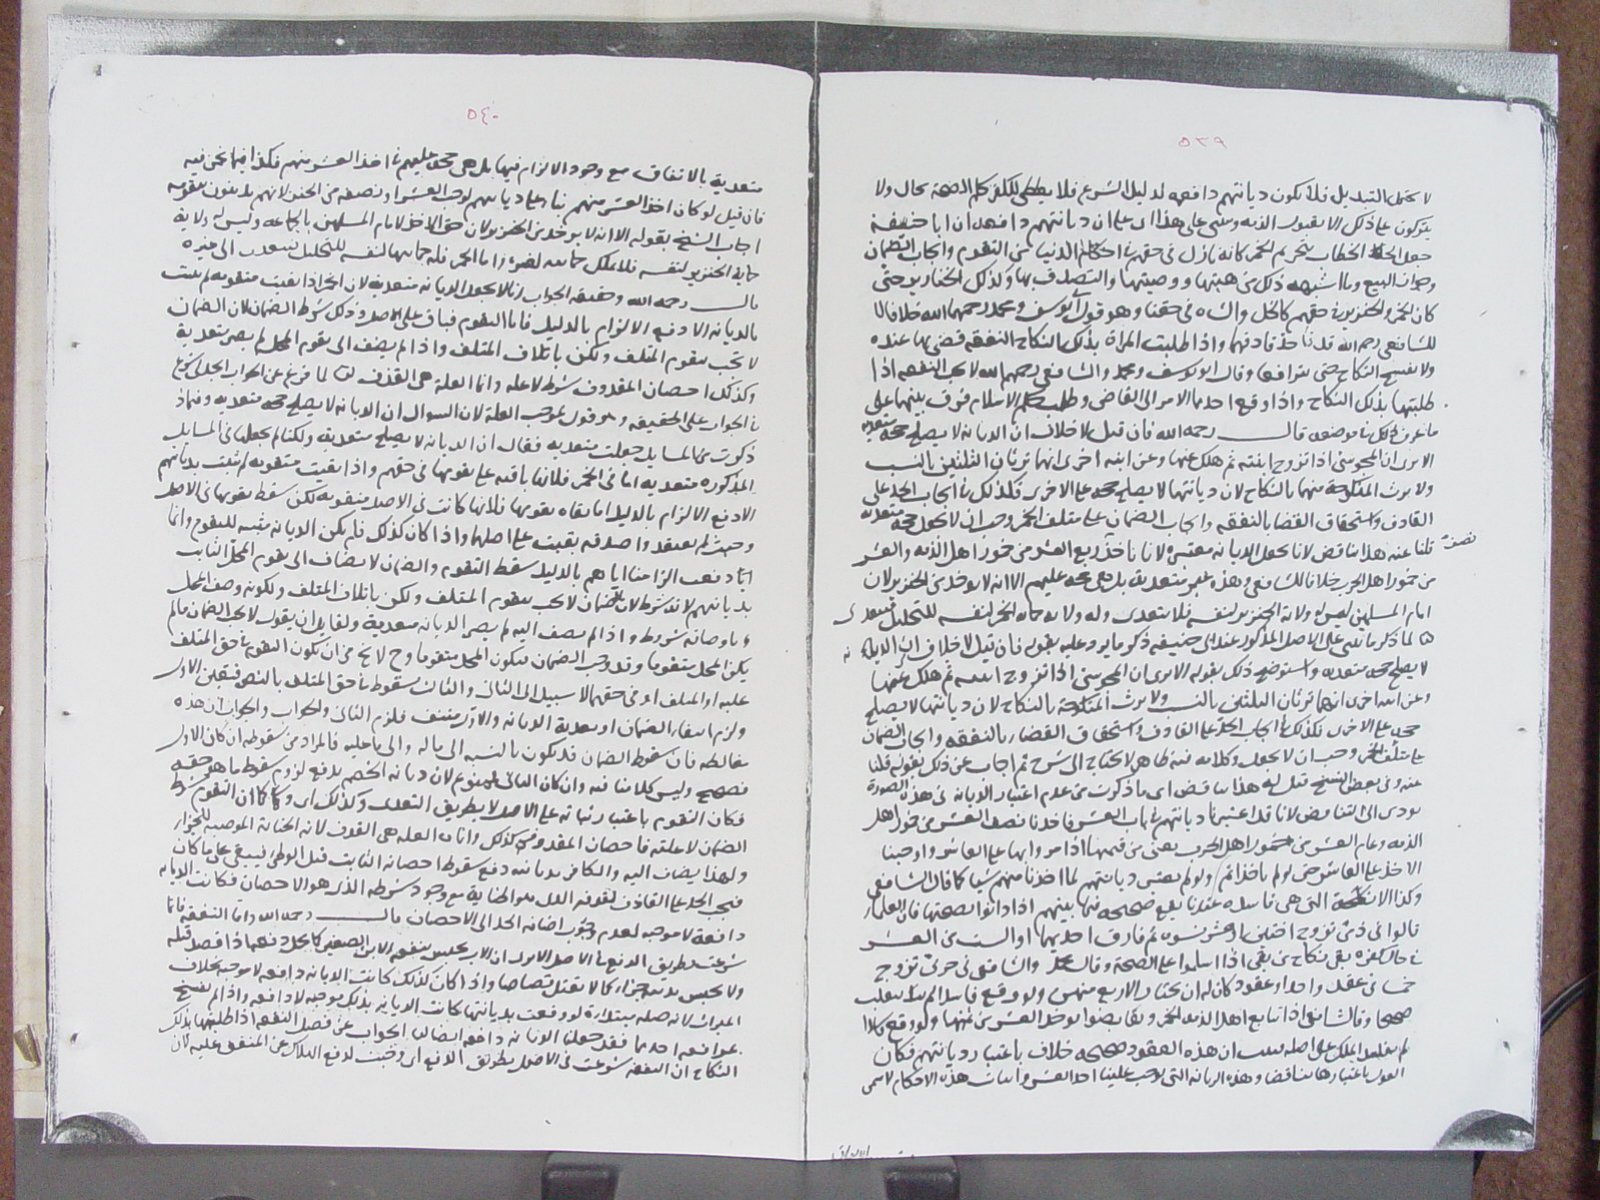 ٥٣٩
لا يحتمل التبديل فلا تكون ديانتهم دافعة لدليل الشرع فلا يعطى للكفر حكم الصحة بحال ولا
يتركون على ذلك الا بقبول الذمة وينبني على هذا اى على ان ديانتهم دافعة ان ابا حنيفة
جعل الخطاب بتحريم الخمر كانه نازل في حقهم في احكام الدنيا من التقوم وايجاب الضمان
وجواز البيع وما اشبه ذلك من هبتها ووصيتها والتصدق بها وكذلك الخنازير حتى
كان الخمر والخنزير في حقهم كالخل والشاة في حقنا وهو قول ابى يوسف ومحمد رحمهما الله خلافا
للشافعي رحمه الله قاذفهما واذا طلبت المراة بذلك النكاح النفقة قضى بها عنده
ولا يفسخ النكاح حتى يترافعا وقال ابو يوسف ومحمد والشافعي رحمهم الله لا يجب النفقة اذا
طلبتها بذلك النكاح واذا رفع احدهما الامر الى القاضي وطلب حكم الاسلام فرق بينهما على
ما عرف ذلك في موضعه قال رحمه الله فان قيل لا خلاف ان الديانة لا يصلح حجة متعدية
الا يرى ان المجوسي اذا تزوج ابنته ثم هلك عنها وعن ابنة اخرى انهما ترثان الثلثين بالنسب
ولا يرث المنكوحة منهما بالنكاح لان ديانتها لا يصلح حجة على الاخرى فكذلك في ايجاب الحد على
القاذف واستحقاق القضا بالنفقة وايجاب الضمان على متلف الخمر وجب ان لا يجعل حجة متعدية
قلنا عنه هذا تناقض لانا نجعل الديانة معتبرة لانا ناخذ نصف العشر من خمور اهل الذمة والعشر
من خمور اهل الحرب خلافا للشافعي وهذه غير متعدية بل هي حجة عليهم الا انه لا يوخذ من الخنزير لان
امام المسلمين ليس له ولاية الخنزير لنفسه فلا يتعدى وله ولاية حماية الخمر لنفسه للتخليل فيتعدى
لما ذكر ما يبتنى على الاصل المذكور عند ابى حنيفة ذكر ما يرد عليه بقوله فان قيل لا خلاف ان الديانة
لا يصلح حجة متعدية واستوضح ذلك بقوله الا يرى ان المجوسي اذا تزوج ابنته ثم هلك عنها
وعن ابنة اخرى انهما ترثان الثلثين بالنسب ولا يرث المنكوحة بالنكاح لان ديانتها لا يصلح
حجة على الاخرى فكذلك في ايجاب الحد على القاذف واستحقاق القضاء بالنفقة وايجاب الضمان
على متلف الخمر وجب ان لا يجعل وكلامه فيه ظاهر لا يحتاج الى شرح ثم اجاب عن ذلك بقوله قلنا
عنه وفي بعض النسخ قيل له هذا تناقض اى ما ذكرت من عدم اعتبار الديانة في هذه الصورة
يودى الى التناقض لانا قد اعتبرنا ديانتهم في باب العشر فاخذنا نصف العشر من خمور اهل
الذمة وتمام العشر من خمور اهل الحرب يعني من قيمتها اذا مروا بها على العاشر واوجبنا
الاخذ على العاشر حتى لو لم ياخذ اثم ولو لم يعتبر ديانتهم لما اخذنا منهم شيا كما قال الشافعي
وكذا الانكحة التي هي فاسدة عندنا يقع صحيحة فيما بينهم اذا دانوا بصحتها فان العلماء
قالوا في ذمي تزوج اختين او عشر نسوة ثم فارق احديهما او الست من العشر
في حال كفره بقى نكاح من بقى اذا اسلموا على الصحة وقال محمد والشافعي في حربي تزوج
خمسا في عقد واحد او عقود كان له ان يختار الاربع منهن ولو وقع فاسدا لم ينقلب
صحيحا وقال الشافعي اذا تبايع اهل الذمة الخمر وتقابضوا يوخذ العشر من ثمنها ولو وقع فاسدا
لم ينتقل الملك على اصله فثبت ان هذه العقود صحيحة خلاف باعتبار ديانتهم فكان
القول باعتبارها تناقضا وهذه الديانة التي توجب علينا اخذ العشر واثبات هذه الاحكام لا تسمى
٥٤٠
متعدية بالاتفاق مع وجود الالزام فيها بل هي حجة عليهم في اخذ العشر منهم فكذا فيما نحن فيه
فان قيل لو كان اخذ العشر منهم بناء على ديانتهم لوجب العشر او نصفه من الخنزير لانهم يدينون بتقومه
اجاب الشيخ بقوله الا انه لا يوخذ من الخنزير لان حق الاخذ لامام المسلمين بالحماية وليس له ولاية
حماية الخنزير لنفسه فلا يملك حمايته لغيره اما الخمر فله حمايتها لنفسه للتخليل فيتعدى الى غيره
قال رحمه الله وحقيقة الجواب انا لا نجعل الديانة متعدية لان الخمر اذا بقيت متقومة لم يثبت
بالديانة الا دفع الالزام بالدليل فاما التقوم فباق على الاصل وذلك شرط الضمان لان الضمان
لا يجب بتقوم المتلف ولكن باتلاف المتلف واذا لم يضف الى تقوم المحل لم يصر متعدية
وكذلك احصان المقذوف شرط لا علة وانما العلة هي القذف لما فرغ عن الجواب الجدلي شرع
في الجواب على الحقيقة وهو قول بموجب العلة لان السوال ان الديانة لا يصلح حجة متعدية وفيما
ذكرت من المسايل جعلت متعدية فقال ان الديانة لا يصلح متعدية ولكنا لم نجعلها في المسايل
المذكورة متعدية اما في الخمر فلانها باقية على تقومها في حقهم واذا بقيت متقومة لم يثبت بديانتهم
الا دفع الالزام بالدليل اما بقاء تقومها فلانها كانت في الاصل متقومة لكن سقط تقومها في الاصل
وحيث لم يعتقدوا صدقه بقيت على اصلها واذا كان كذلك فلم يكن الديانة مثبتة للتقوم وانما
دفعت الزامنا اياهم بالدليل سقط التقوم والضمان لا يضاف الى تقوم المحل الثابت
بديانتهم لانه شرط لان الضمان لا يجب بتقوم المتلف ولكن باتلاف المتلف ولكونه وصف المحل
واوصافه شروط واذا لم يضف اليه لم يصر الديانة متعدية ولقايل ان يقول لا يجب الضمان ما لم
يكن المحل متقوما وقد وجب الضمان فيكون المحل متقوما وح لا يخ من ان يكون التقوم في حق المتلف
عليه او المتلف او في حقهما لا سبيل الى الثاني والثالث لسقوط في حق المتلف بالنص فتعين الاول
ولزم انتفاء الضمان او تعدية الديانة والاول منتف فلزم الثاني والجواب والجواب ان هذه
مغالطة فان سقوط الضمان قد يكون بالنسبة الى ماله والى ما عليه فالمراد من سقوطه ان كان الاول
فصحيح وليس كلامنا فيه وان كان الثاني فممنوع لان ديانة الخصم يدفع لزوم سقوط ما هو حقه
فكان التقوم باعتبار ثباته على الاصل لا بطريق التعدى وكذلك اى وكما ان التقوم شرط
الضمان لا علته فاحصان المقذوف كذلك وانما العلة هي القذف لانه الجناية الموجبة للجزاء
ولهذا يضاف اليه والكافر بديانته دفع سقوط احصانه الثابت قبل الوطى فيبقى على ما كان
فيجب الحد على القاذف لقذفه الذى هو الجناية مع وجود شرطه الذى هو الاحصان فكانت الديانة
دافعة لا موجبة لعدم وجوب اضافة الحد الى الاحصان قال رحمه الله واما النفقة فانما
شرعت بطريق الدفع في الاصل الا يرى ان الاب يحبس بنفقة الابن الصغير كما يحل دفعه اذا قصد قتله
ولا يحبس بدينه جزاء كما لا يقتل قصاصا واذا كان كذلك كانت الديانة دافعة لا موجبة بخلاف
الميراث لانه صلة مبتدأة لو وجبت بديانتها كانت الديانة بذلك موجبة لا دافعة واذا لم يفسخ
بمرافعة احدهما فقد جعلنا الديانة دافعة ايضا اى الجواب عن فصل النفقة اذا طلبتها بذلك
النكاح ان النفقة شرعت في الاصل بطريق الدفع اى وجبت لدفع الهلاك عن المنفق عليه لان